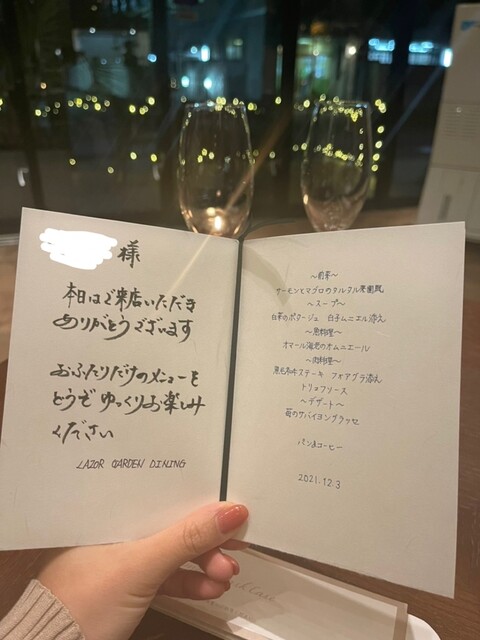 様
本日はご来店いただき
ありがとうございます
おふたりだけのメニューを
どうぞゆっくりお楽しみ
ください
LAZOR GARDEN DINING
〜前菜〜
サーモンとマグロのタルタル菜園風
〜スープ〜
白子ムニエル添え
〜魚料理〜
オマール海老のオムニエール
〜肉料理〜
黒毛和牛ステーキ フォアグラ添え
トリュフソース
〜デザート〜
苺のサバイヨングラッセ
パン&コーヒー
2021.12.3